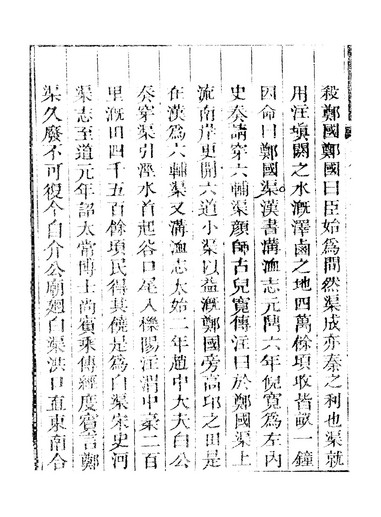 殺鄭國鄭國曰臣始為間然渠成亦秦之利也渠就
用注填閼之水溉澤鹵之地四萬餘頃收皆畝一鐘
因命曰鄭國渠漢書溝洫志元鼎六年倪寬為左內
史奏請穿六輔渠顏師古兒寬傳注曰於鄭國渠上
流南岸更開六道小渠以益溉鄭國旁高卭之田是
在漢為六輔渠又溝洫志太始二年趙中大夫白公
奏穿渠引涇水首起谷口尾入櫟陽注渭中袤二百
里溉田四千五百餘頃民得其饒是為白渠宋史河
渠志至道元年詔太常博士尚賓乘傳經度賓言鄭
渠久廢不可復今自介公廟廻白渠洪口直東南合